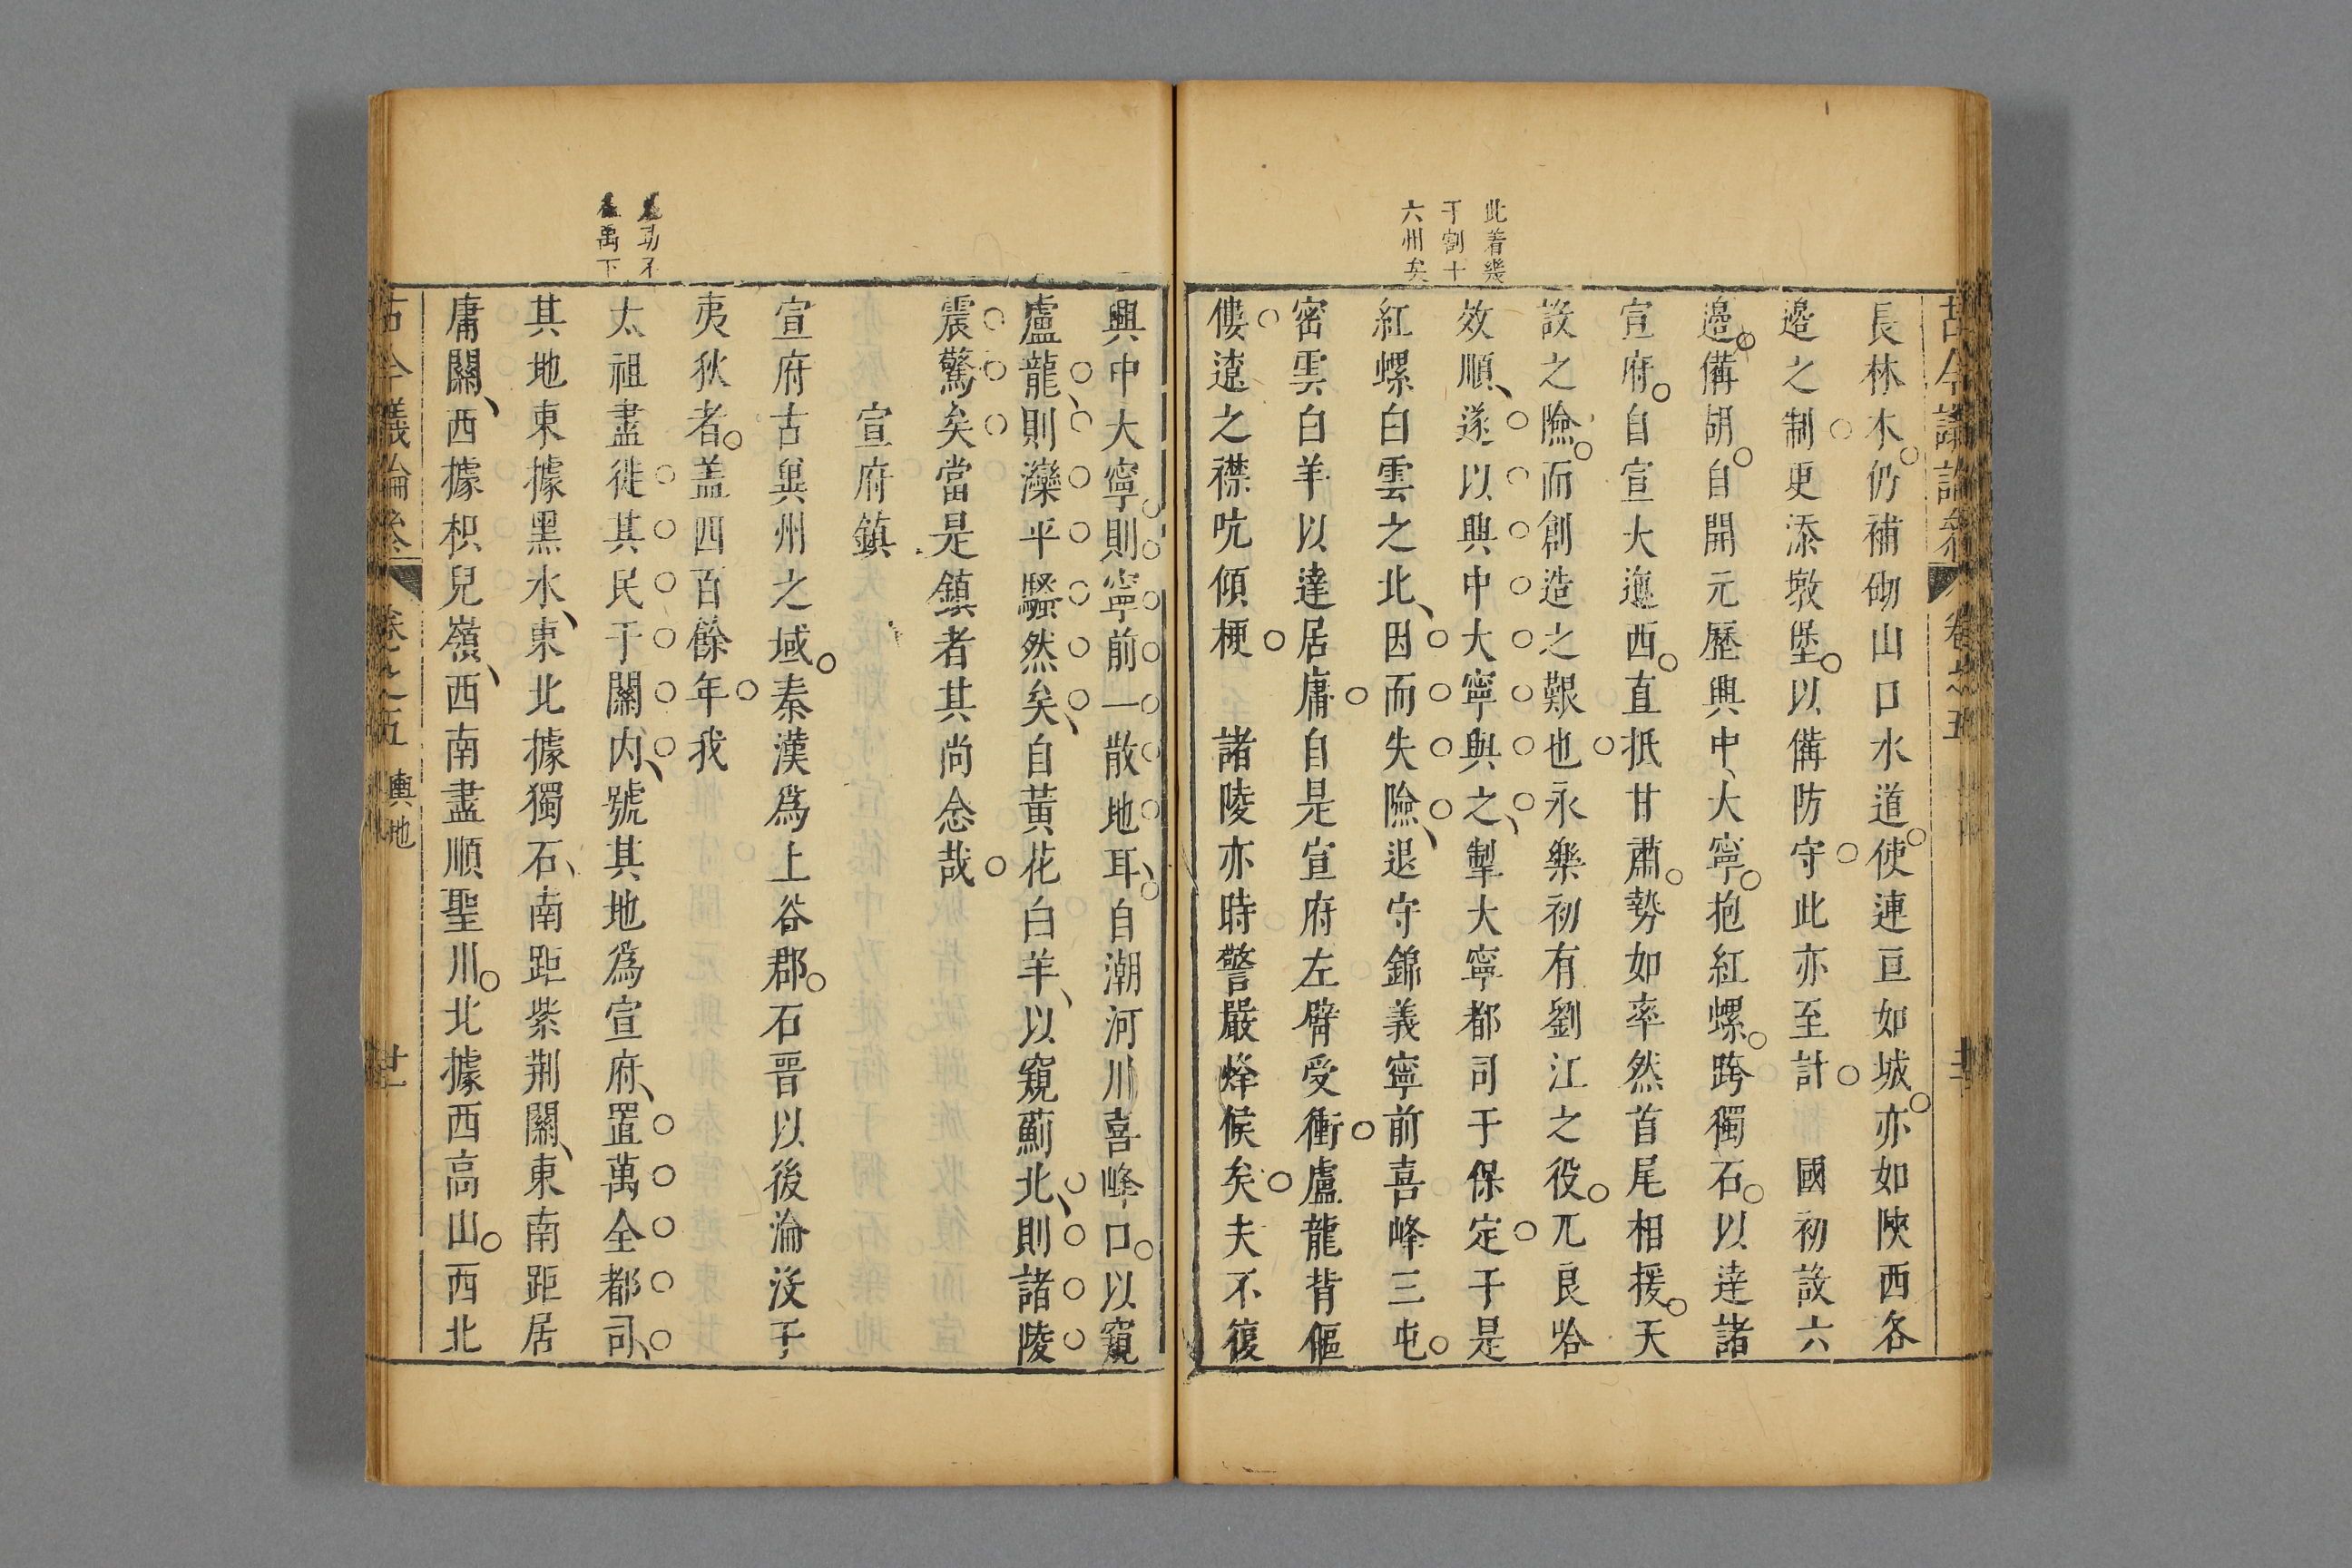 古今議論參 卷之五
此着幾
于割十
六州矣
長林木仍補砌山口水道使連亘如城亦如陝西各
邊之制更添墩堡以備防守此亦至計 國初設六
邊備胡自開元歷興中大寧抱紅螺跨獨石以達諸
宣府自宣大迤西直抵甘肅勢如率然首尾相援天
設之險而創造之艱也永樂初有劉江之役兀良哈
效順遂以興中大寧與之掣大寧都司于保定于是
紅螺白雲之北因而失險退守錦義寧前喜峰三屯
密雲白羊以達居庸自是宣府左臂受衝盧龍背傴
僂遼之襟吭傾梗 諸陵亦時警嚴烽候矣夫不復
興中大寧則寧前一散地耳自潮河川喜峰口以窺
盧龍則灤平騷然矣自黃花白羊以窺薊北則諸陵
震驚矣當是鎮者其尚念哉
宣府鎮
宣府古冀州之域秦漢爲上谷郡石晉以後淪沒于
夷狄者蓋四百餘年我
太祖盡徙其民于關內號其地爲宣府置萬全都司
其地東據黑水東北據獨石南距紫荆關東南距居
庸關西據枳兒嶺西南盡順聖川北據西高山西北
功不
禹下
古今議論參 卷之五 輿地 廿一